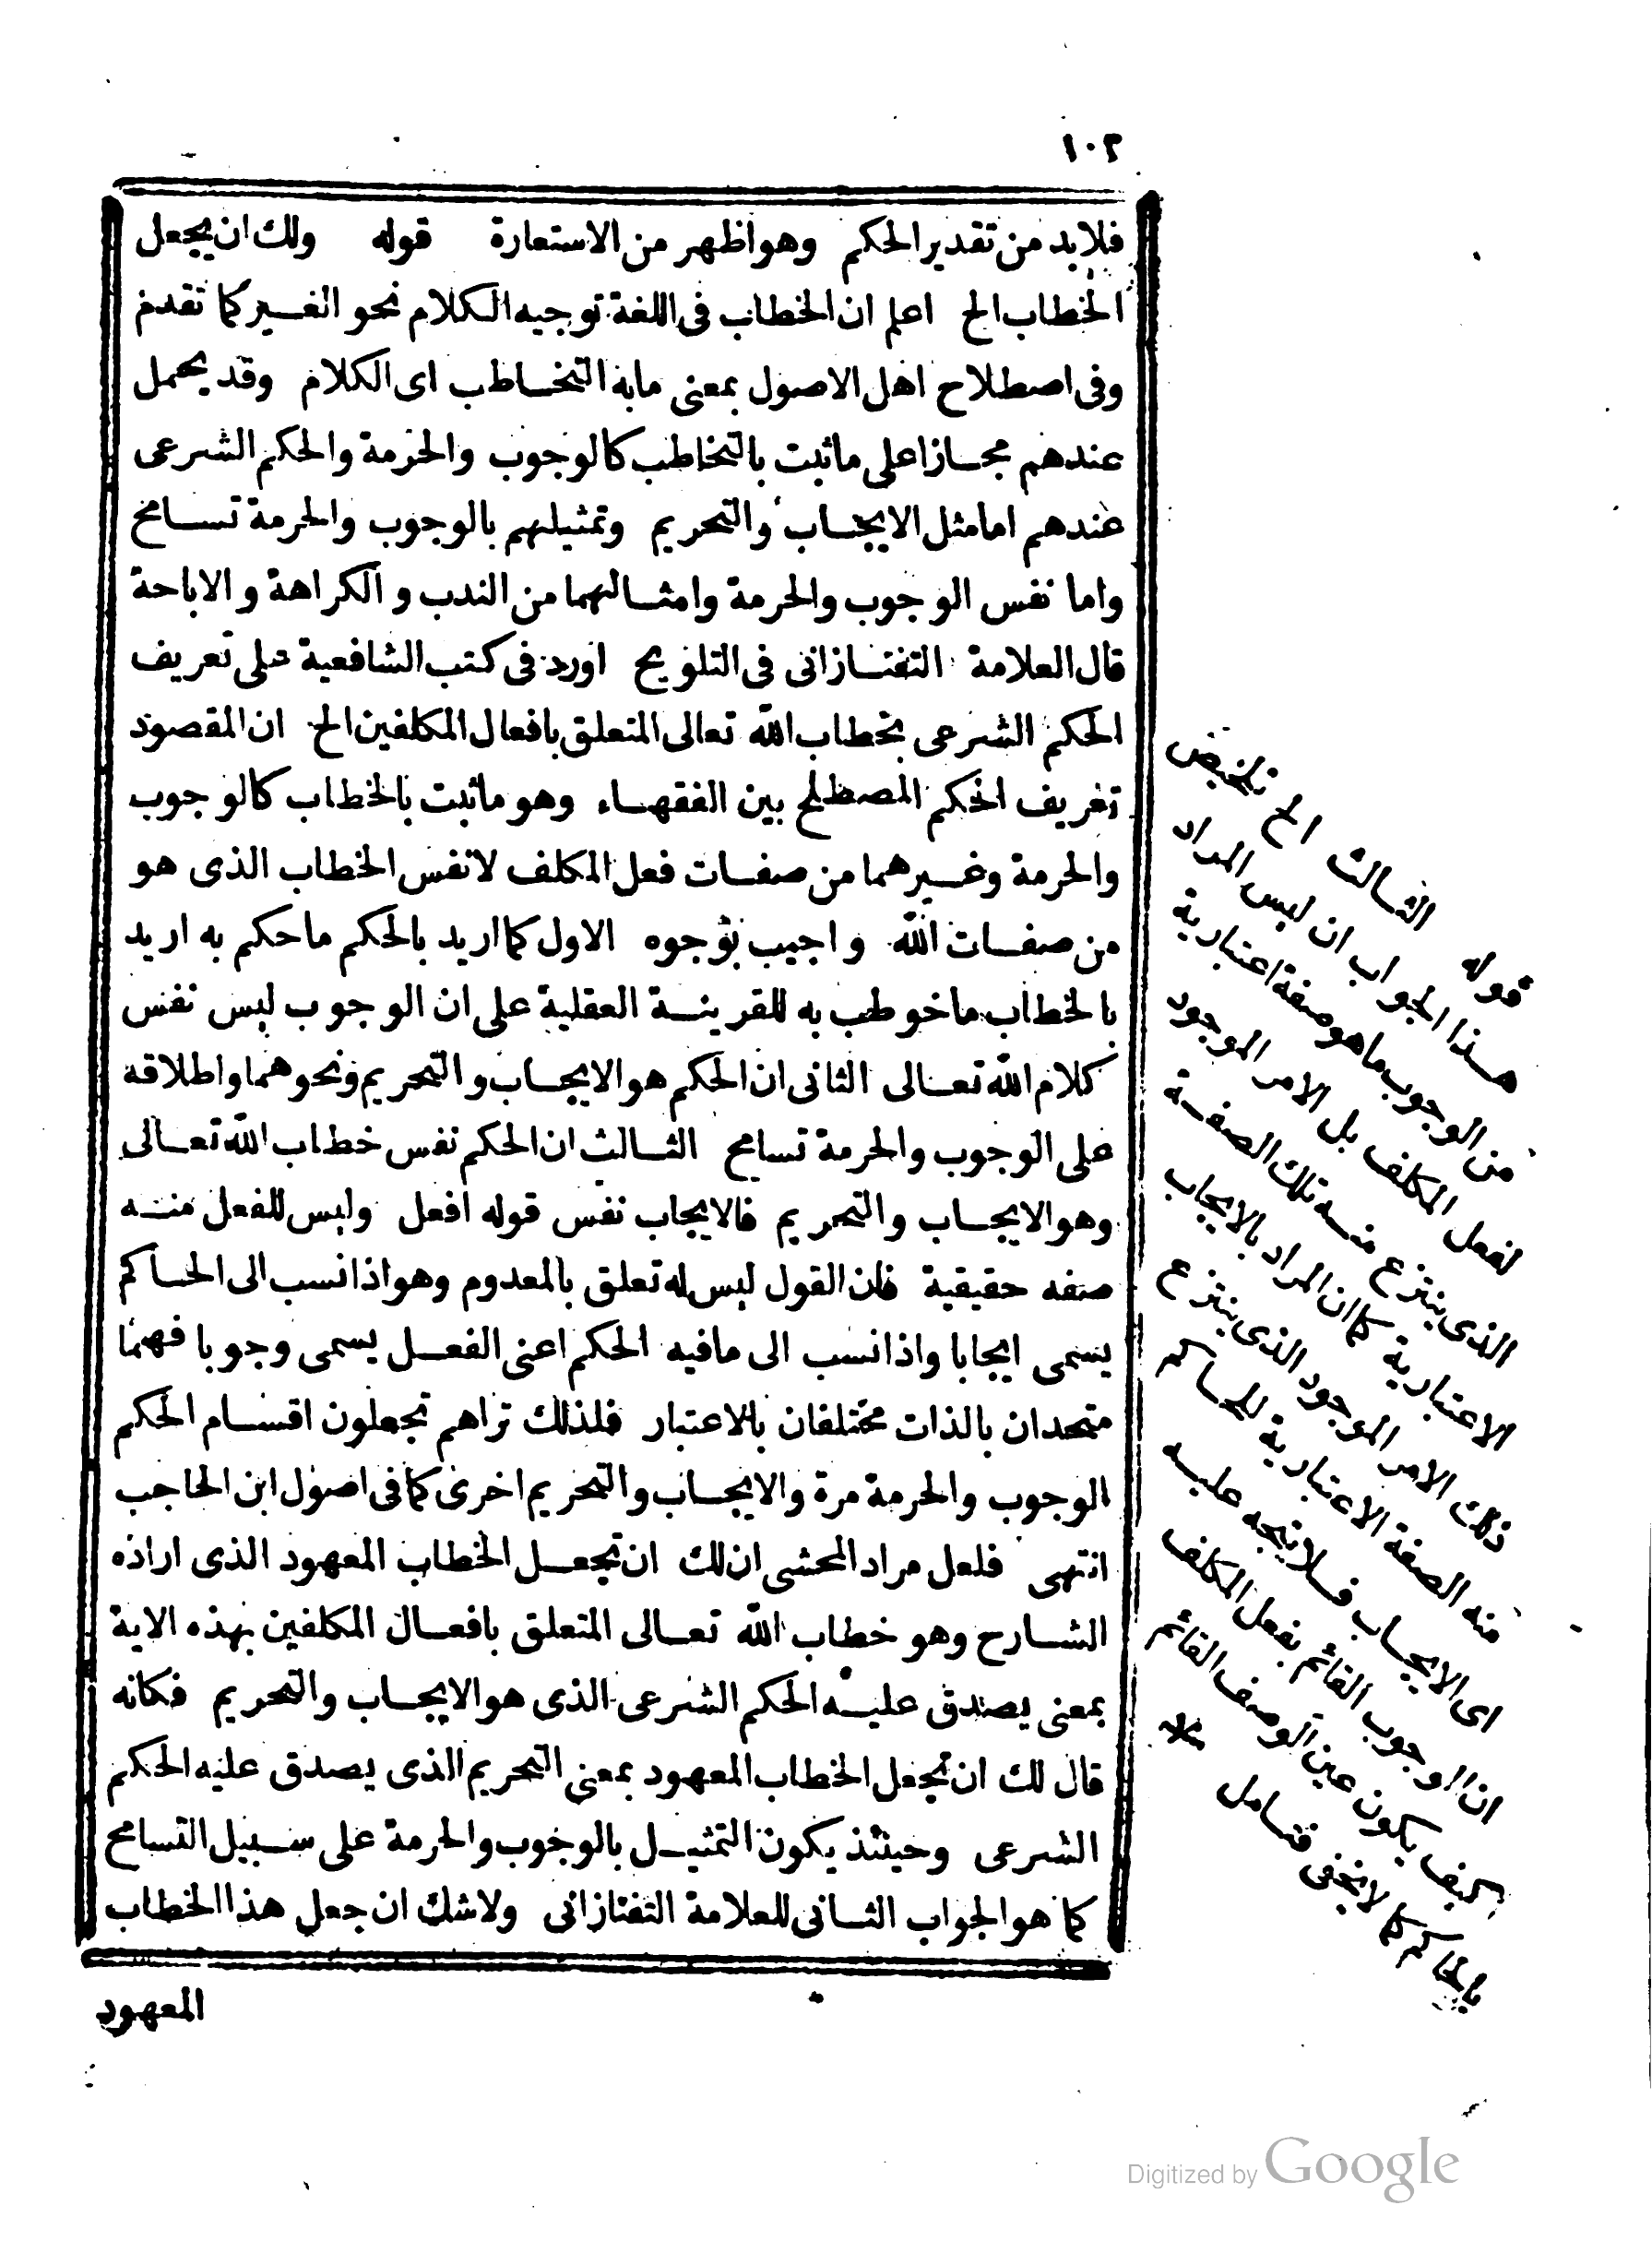 ١٠٢
فلابد من تقدير الحكم وهو اظهر من الاستعارة قوله ولك ان يجعل
الخطاب الخ اعلم ان الخطاب فى اللغة توجيه الكلام نحو الغير كما تقدم
وفى اصطلاح اهل الاصول بمعنى مابه التخاطب اى الكلام وقد يحمل
عندهم مجازا على ماثبت بالتخاطب كالوجوب والحرمة والحكم الشرعى
عندهم اما مثل الايجاب والتحريم وتمثيلهم بالوجوب والحرمة تسامح
واما نفس الوجوب والحرمة وامثالهما من الندب والكراهة والاباحة
قال العلامة التفتازانى فى التلويح اورد فى كتب الشافعية على تعريف
الحكم الشرعى بخطاب الله تعالى المتعلق بافعال المكلفين الخ ان المقصود
تعريف الحكم المصطلح بين الفقهاء وهو ماثبت بالخطاب كالوجوب
والحرمة وغيرهما من صفات فعل المكلف لانفس الخطاب الذى هو
من صفات الله واجيب بوجوه الاول كما اريد بالحكم ماحكم به اريد
بالخطاب ماخوطب به للقرينة العقلية على ان الوجوب ليس نفس
كلام الله تعالى الثانى ان الحكم هو الايجاب والتحريم ونحوهما واطلاقه
على الوجوب والحرمة تسامح الثالث ان الحكم نفس خطاب الله تعالى
وهو الايجاب والتحريم فالايجاب نفس قوله افعل وليس للفعل منه
صفه حقيقية فان القول ليس له تعلق بالمعدوم وهو اذا نسب الى الحاكم
يسمى ايجابا واذا نسب الى مافيه الحكم اعنى الفعل يسمى وجوبا فهما
متحدان بالذات مختلفان بالاعتبار فلذلك تراهم تجعلون اقسام الحكم
الوجوب والحرمة مرة والايجاب والتحريم اخرى كما فى اصول ابن الحاجب
انتهى فلعل مراد المحشى ان لك ان تجعل الخطاب المعهود الذى اراده
الشارح وهو خطاب الله تعالى المتعلق بافعال المكلفين بهذه الاية
بمعنى يصدق عليه الحكم الشرعى الذى هو الايجاب والتحريم فكانه
قال لك ان تجعل الخطاب المعهود بمعنى التحريم الذى يصدق عليه الحكم
الشرعى وحينئذ يكون التمثيل بالوجوب والحرمة على سبيل التسامح
كما هو الجواب الثانى للعلامة التفتازانى ولاشك ان جعل هذا الخطاب
المعهود
قوله الثالث الخ تلخيص
هذا الجواب ان ليس المراد
من الوجوب ماهو صفة اعتبارية
لفعل المكلف بل الامر الموجود
الذى ينتزع منه تلك الصفة
الاعتبارية كما ان المراد بالايجاب
ذلك الامر الموجود الذى ينتزع
منه الصفة الاعتبارية للحاكم
اى الايجاب فلا يتجه عليه
ان الوجوب القائم بفعل المكلف
كيف يكون عين الوصف القائم
بالحاكم كما لايخفى فتأمل
Digitized by Google